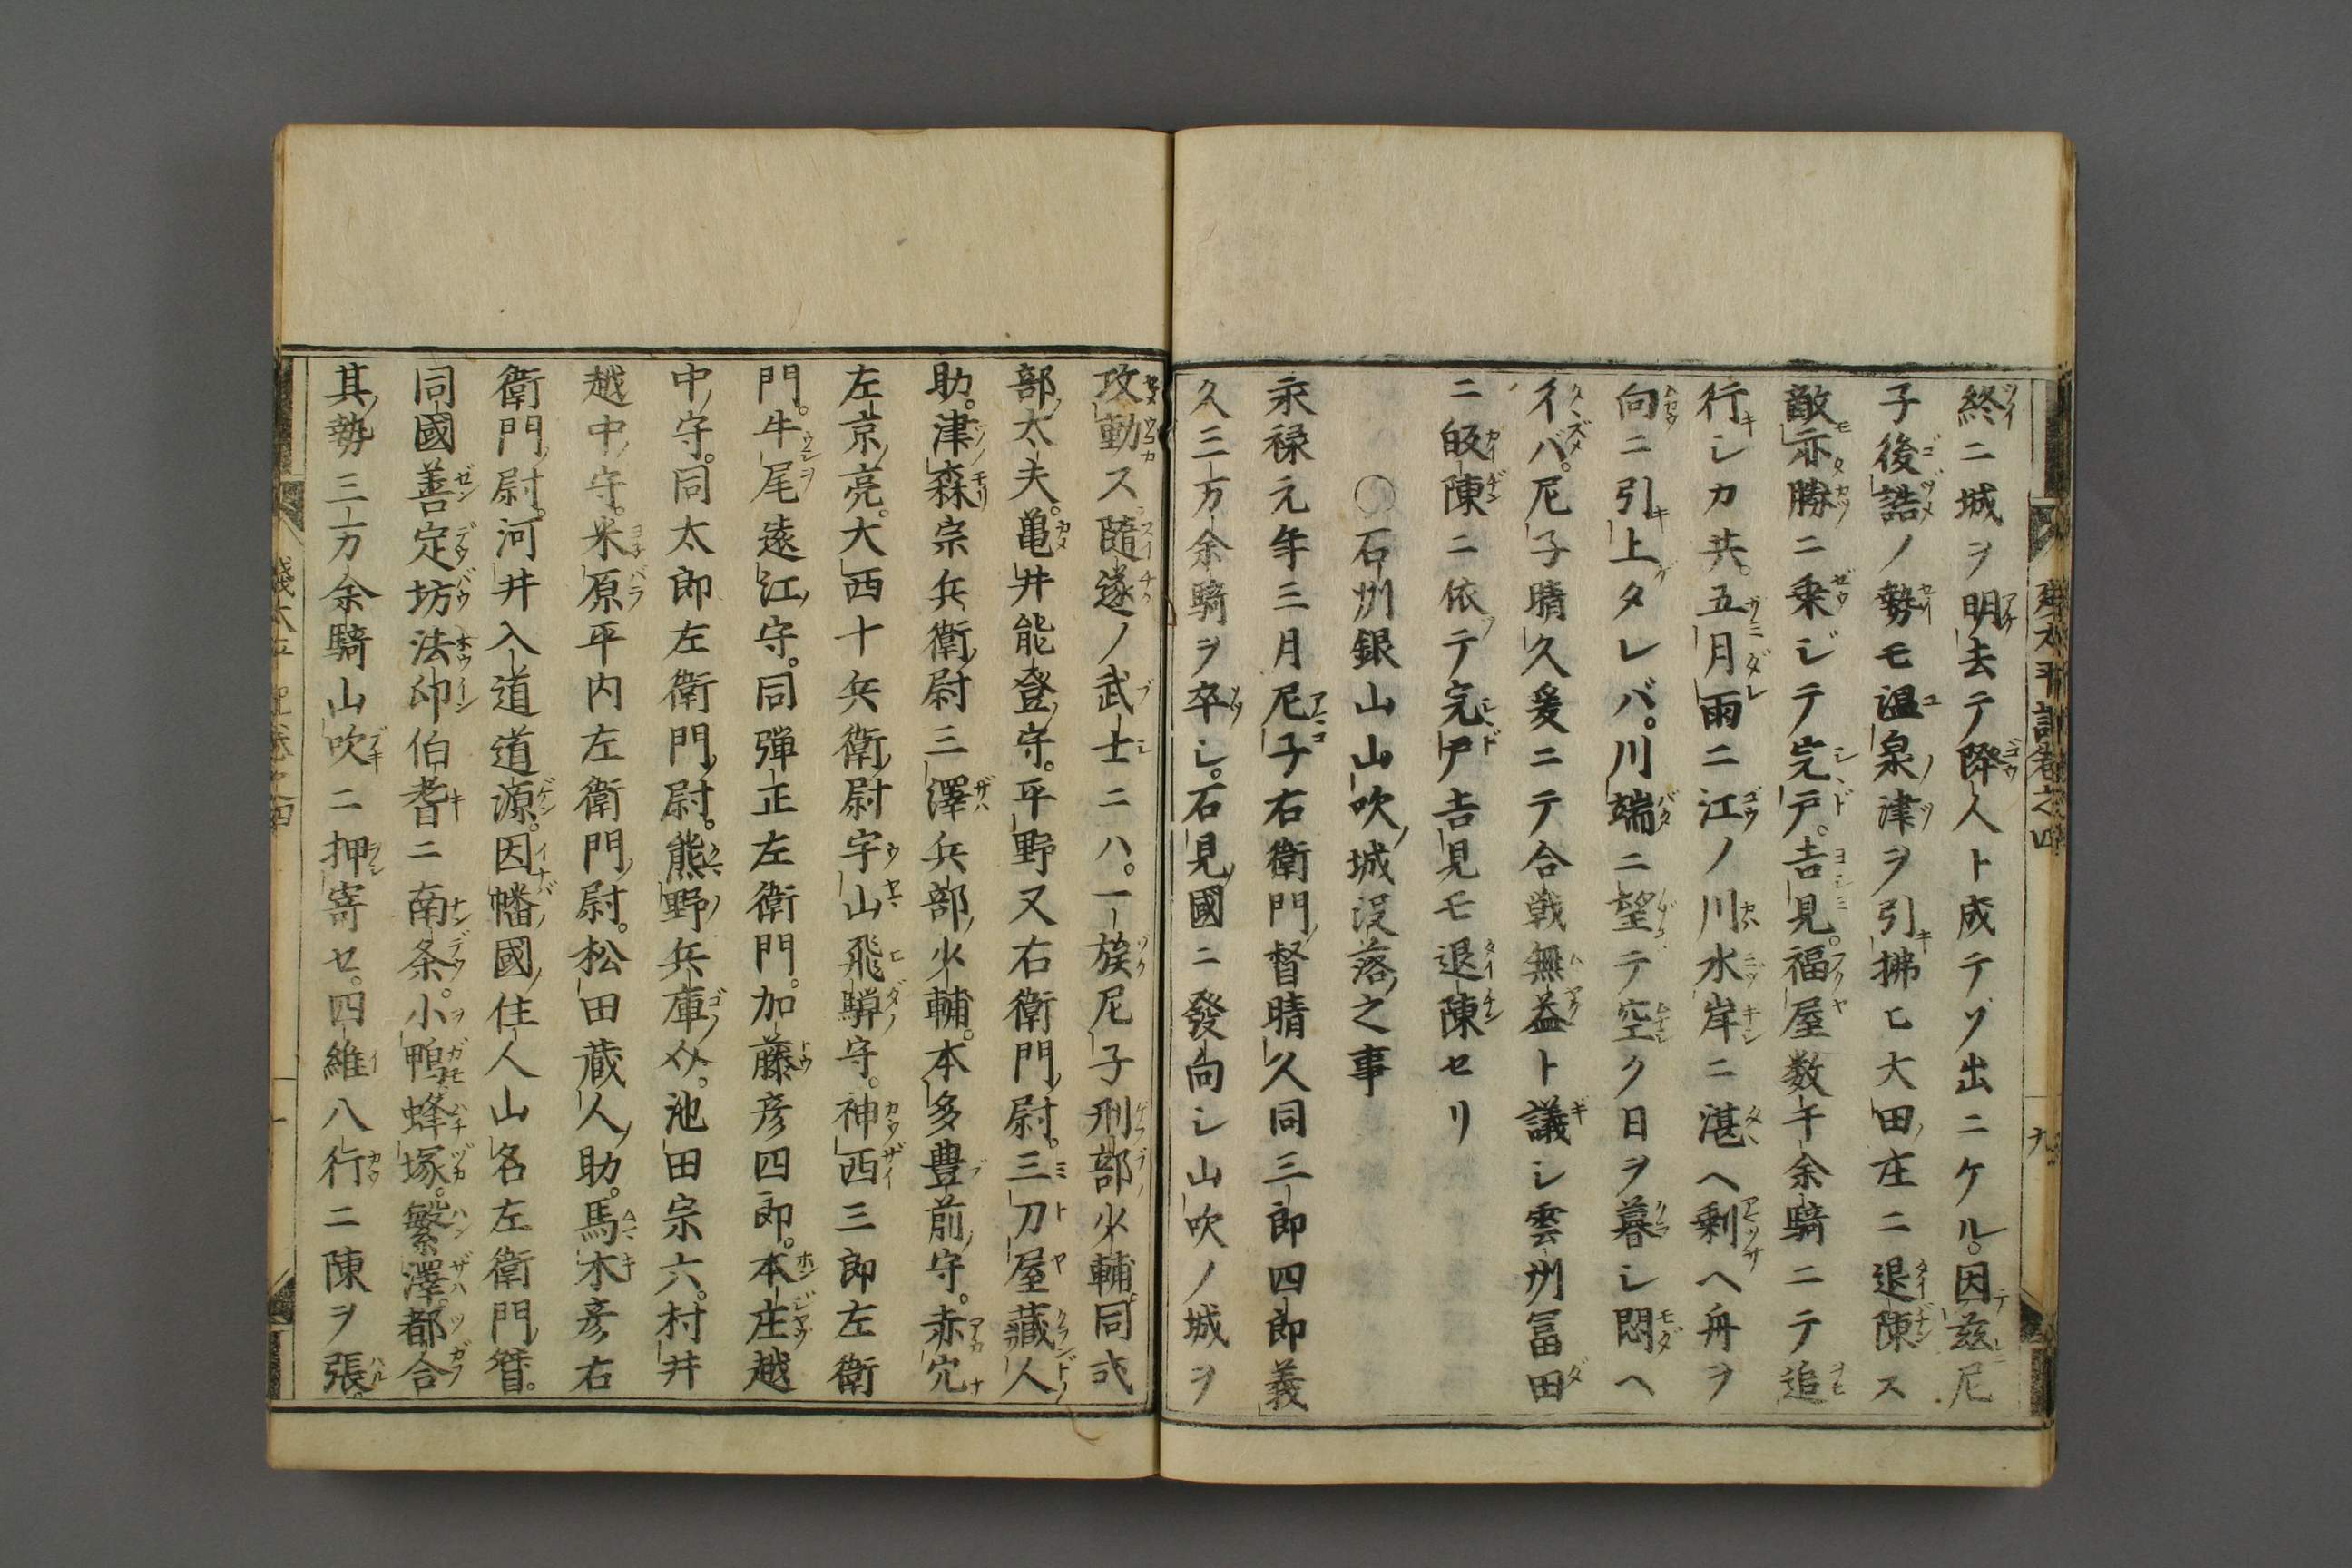 終ニ城ヲ明去テ降人ト成テゾ出ニケル。因茲尼
子後詰ノ勢モ温泉津ヲ引拂ヒ大田庄ニ退陳ス
敵亦勝ニ乗ジテ完戸。吉見。福屋数千余騎ニテ追
行シカ共。五月雨ニ江ノ川水岸ニ湛ヘ剰ヘ舟ヲ
向ニ引上タレバ。川端ニ望テ空ク日ヲ暮シ悶ヘ
イバ。尼子晴久爰ニテ合戦無益ト議シ雲州冨田
ニ皈陳ニ依テ完戸吉見モ退陳セリ
○石州銀山山吹城没落之事
永禄元年三月尼子右衛門督晴久同三郎四郎義
久三万余騎ヲ卒シ。石見國ニ發向シ山吹ノ城ヲ
攻動ス随遂ノ武士ニハ。一族尼子刑部少輔。同式
部太夫。亀井能登守。平野又右衛門尉。三刀屋藏人
助。津森宗兵衛尉三澤兵部少輔。本多豊前守。赤穴
左京亮。大西十兵衛尉宇山飛騨守。神西三郎左衛
門。牛尾遠江守。同弾正左衛門。加藤彦四郎。本庄越
中守。同太郎左衛門尉。熊野兵庫。池田宗六。村井
越中守。米原平内左衛門尉。松田蔵人助。馬木彦右
衛門尉。河井入道道源。因幡國住人山名左衛門督。
同國善定坊法印伯耆ニ南条。小鴨蜂塚。繁澤。都合
其勢三万余騎山吹ニ押寄セ。四維八行ニ陳ヲ張。